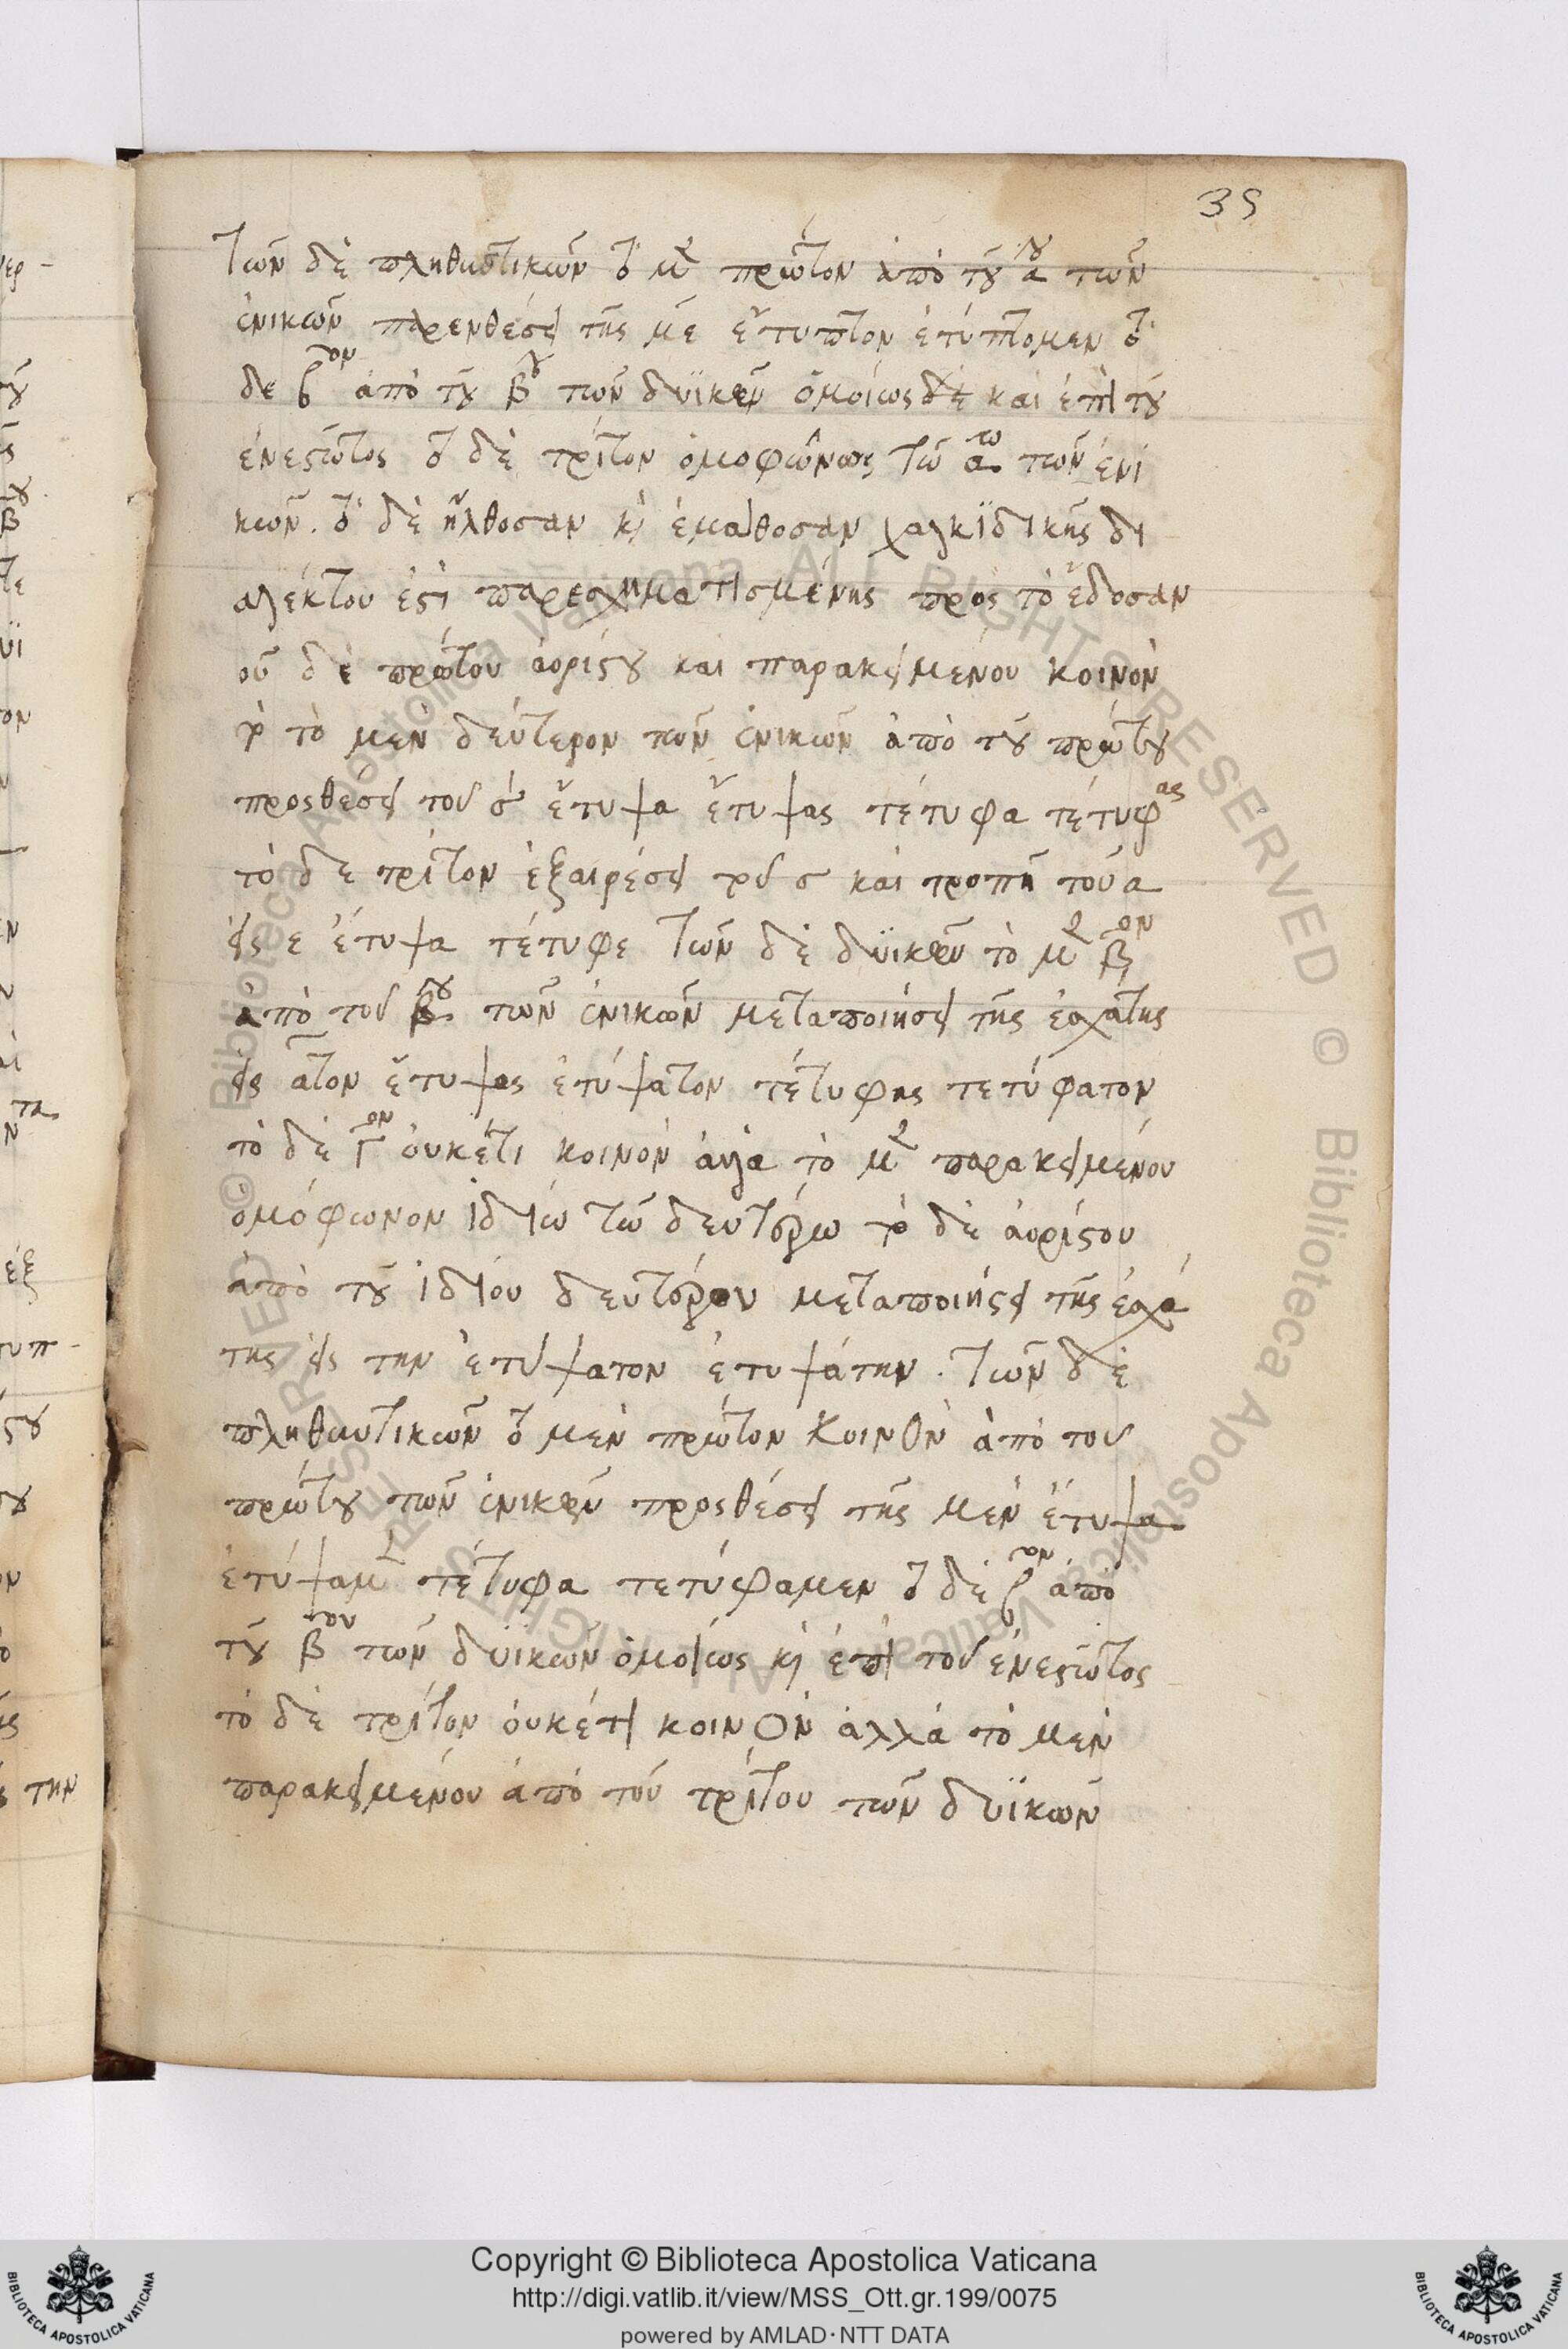 35
Τῶν δὲ πληθυντικῶν τὸ μὲ πρῶτον ἀπὸ τοῦ α^ου τῶν
ἑνικῶν παρενθέσει τῆς με ἔτυπτον ἐτύπτομεν τὸ
δε β^τον ἀπὸ τοῦ β^ου τῶν δυϊκῶν ὁμοίως δὲ καὶ ἐπὶ τοῦ
ἐνεστῶτος τὸ δὲ τρίτον ὁμοφώνως τῶ α^τω τῶν ἑνι
κῶν. τὸ δὲ ἤλθοσαν κὶ ἐμάθοσαν χαλκϊδικῆς δι
αλέκτου ἐστὶ παρεσχηματισμένης πρὸς τὸ ἔδοσαν
οῦ δὲ πρώτου ἀορίστου καὶ παρακειμένου κοινὸν
τὸ μὲν δεύτερον τῶν ἑνικῶν ἀπὸ τοῦ πρώτου
προσθέσει τοῦ σ ἔτυψα ἔτυψας τέτυφα τέτυφ^ας
τὸ δὲ τρίτον ἐξαιρέσει τοῦ σ καὶ τροπῆ τοῦ α
εἰς ε ἔτυψα τέτυφε Τῶν δὲ δυϊκῶν τὸ μὲ β^ον
ἀπὸ τοῦ β^ου τῶν ἑνικῶν μεταποιήσει τῆς ἐσχάτης
εἰς ατον ἔτυψας ἐτύψατον τέτυφης τετύφατον
τὸ δὲ Γ^ον οὐκέτι κοινὸν ἀλλὰ τὸ μὲ παρακειμένου
ὁμόφωνον ἰδίω τῶ δευτέρω τὸ δὲ ἀορίστου
ἀπὸ τοῦ ἰδίου δευτέρου μεταποιήσει τῆς ἐσχά
της εἰς την ἐτύψατον ἐτυψάτην. Τῶν δὲ
πληθυντικῶν τὸ μὲν πρῶτον κοινὸν ἀπὸ τοῦ
πρώτου τῶν ἑνικῶν προσθέσει τῆς μεν ἔτυψα
ἐτύψαμ τέτυφα τετύφαμεν τὸ δὲ β^τον ἀπὸ
τοῦ β^του τῶν δυϊκῶν ὁμοίως κὶ ἐπὶ τοῦ ἐνεστῶτος
τὸ δὲ τρίτον οὐκέτι κοινὸν ἀλλὰ τὸ μὲν
παρακειμένου ἀπὸ τοῦ τρίτου τῶν δυϊκῶν
Copyright © Biblioteca Apostolica Vaticana
http://digi.vatlib.it/view/MSS_Ott.gr.199/0075
powered by AMLAD·NTT DATA